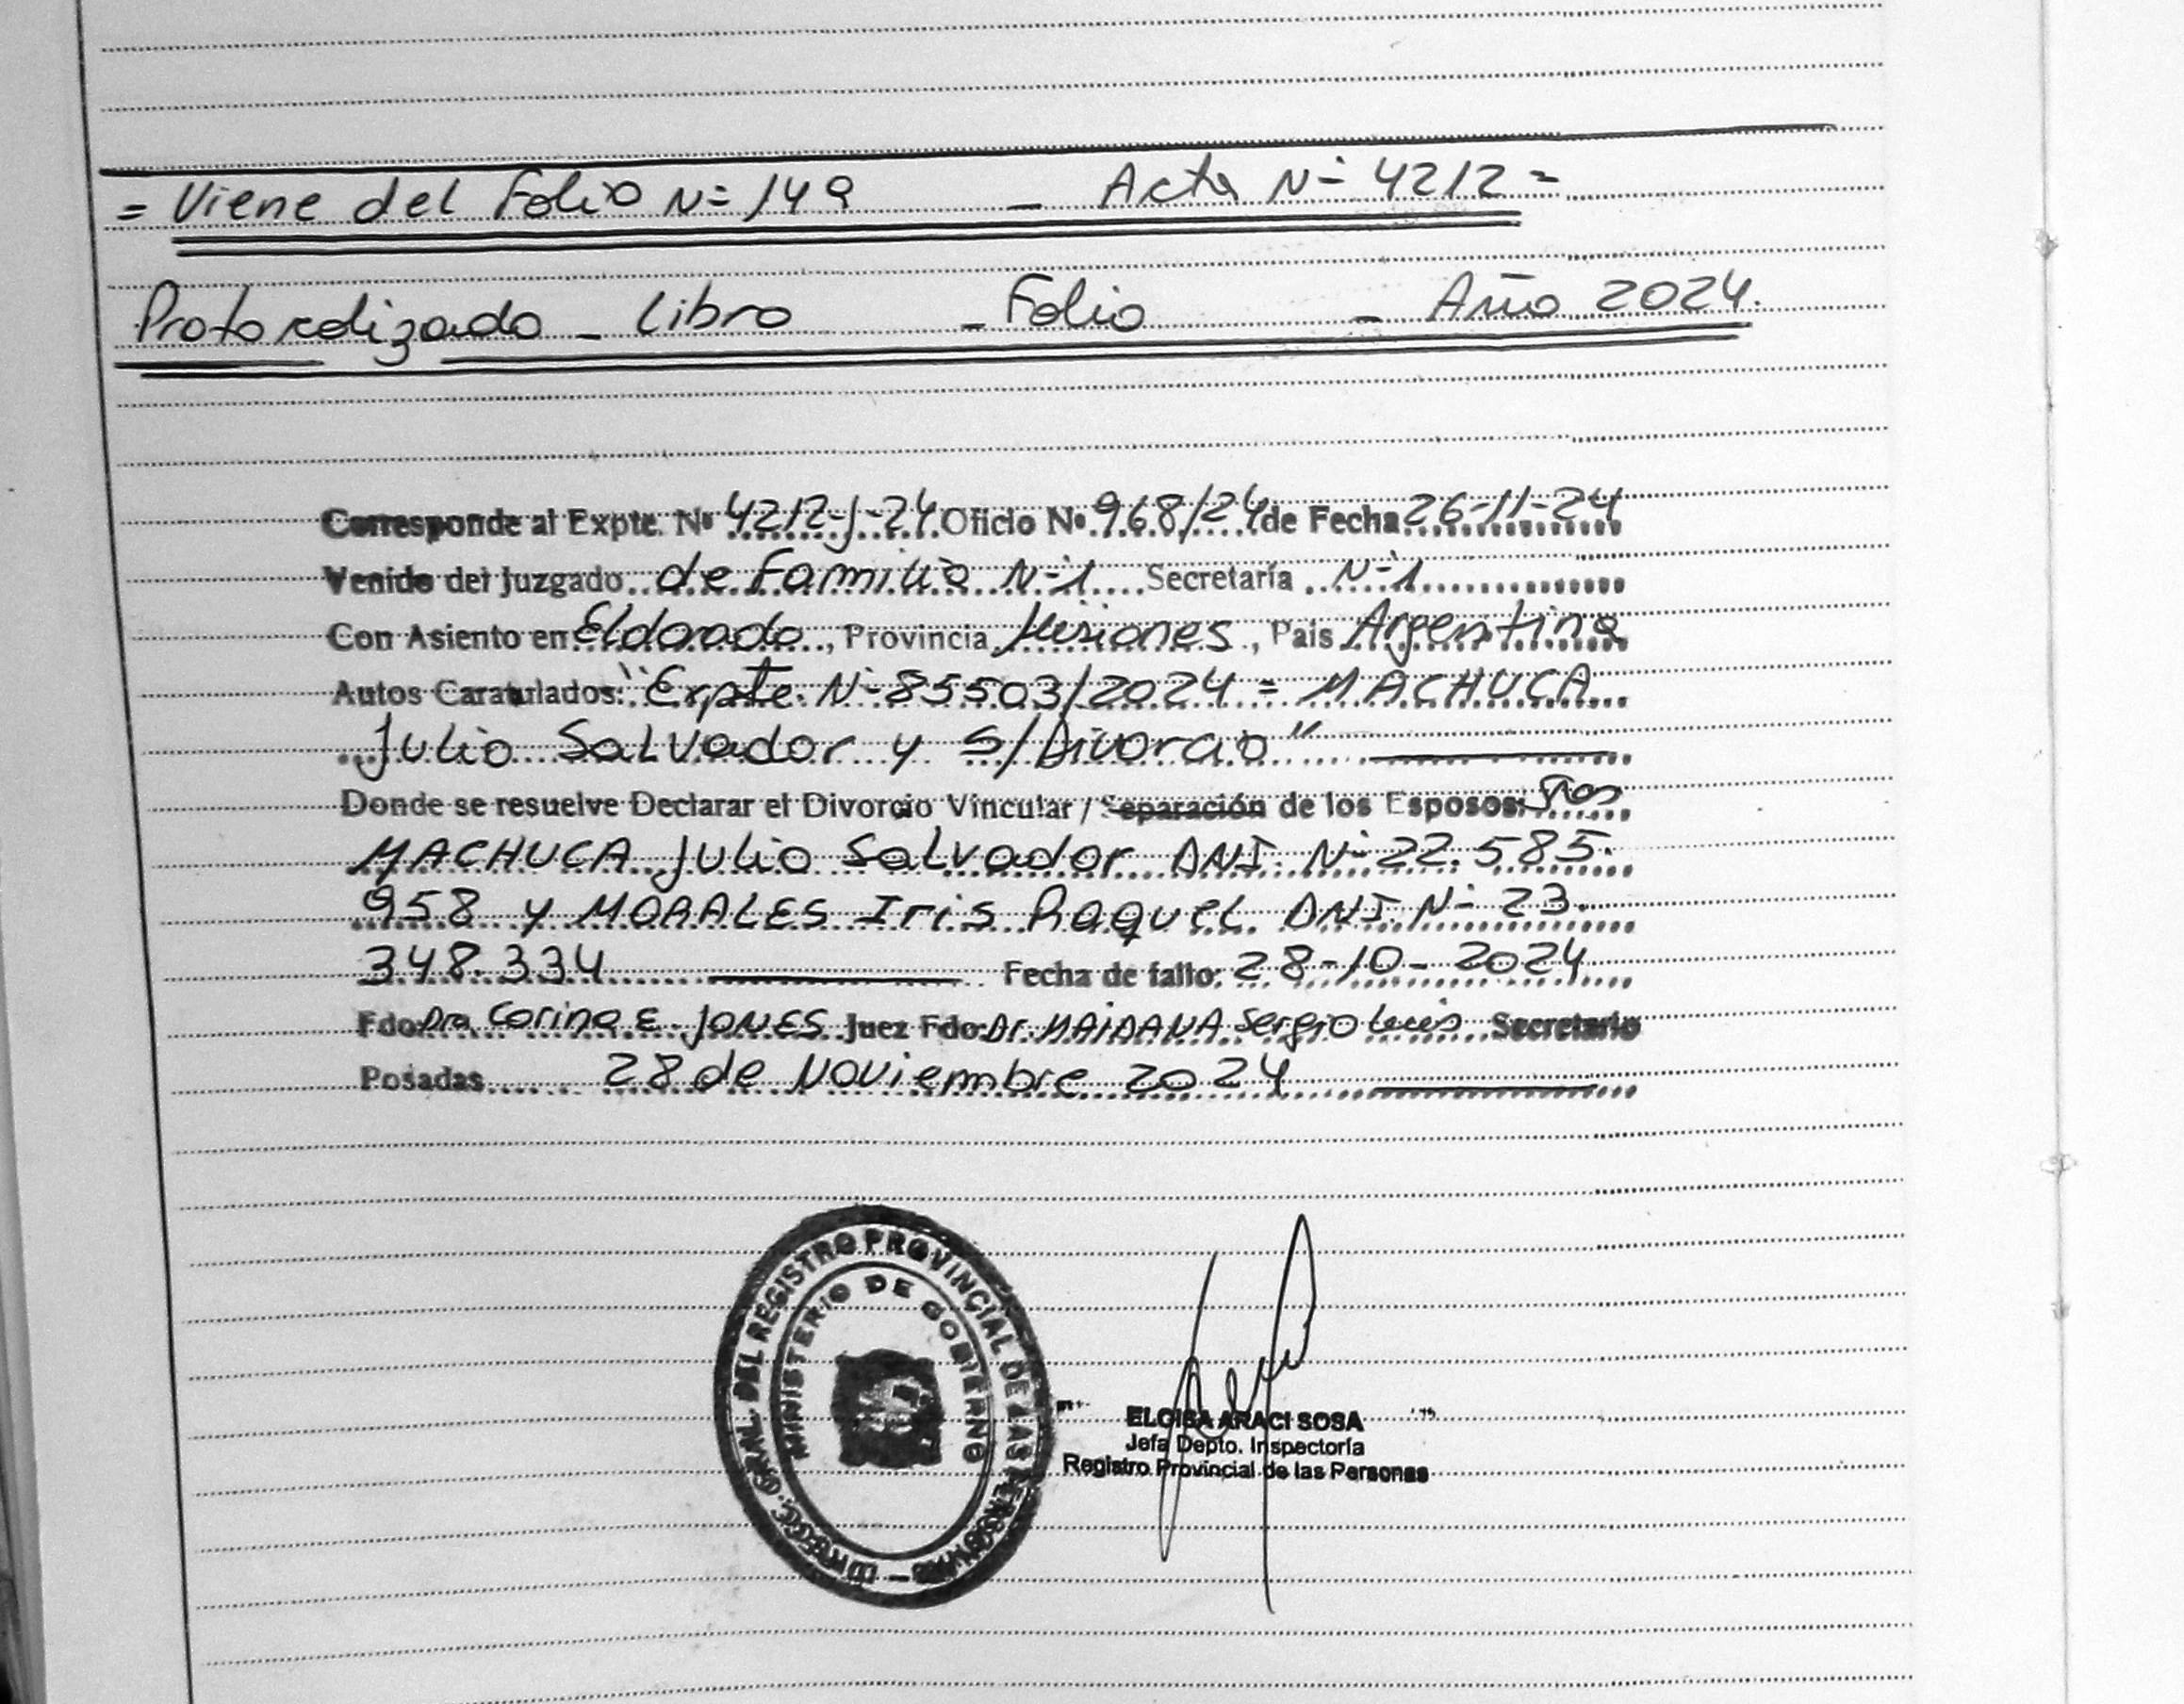 = Viene del Folio Nº 149 - Acta Nº 4212 =
Protocolizado - Libro - Folio - Año 2024.
Corresponde al Expte. Nº 4212-J-24 Oficio Nº 968/24 de Fecha 26-11-24
Venido del Juzgado de Familia Nº 1 Secretaría Nº 1
Con Asiento en Eldorado, Provincia Misiones, País Argentina
Autos Caratulados: "Expte. Nº 85503/2024 = MACHUCA
Julio Salvador y s/Divorcio"
Donde se resuelve Declarar el Divorcio Vincular / Separación de los Esposos: Sres
MACHUCA Julio Salvador DNI. Nº 22.585.
958 y MORALES Iris Raquel DNI. Nº 23.
348.334 Fecha de fallo: 28-10-2024
Fdo: Dra. Corina E. JONES Juez Fdo: Dr. MAIDANA Sergio Luis Secretario
Posadas 28 de Noviembre 2024
DIRECC. GRAL. DEL REGISTRO PROVINCIAL DE LAS PERSONAS -
MINISTERIO DE GOBIERNO
ELOISA ARACI SOSA
Jefa Depto. Inspectoría
Registro Provincial de las Personas